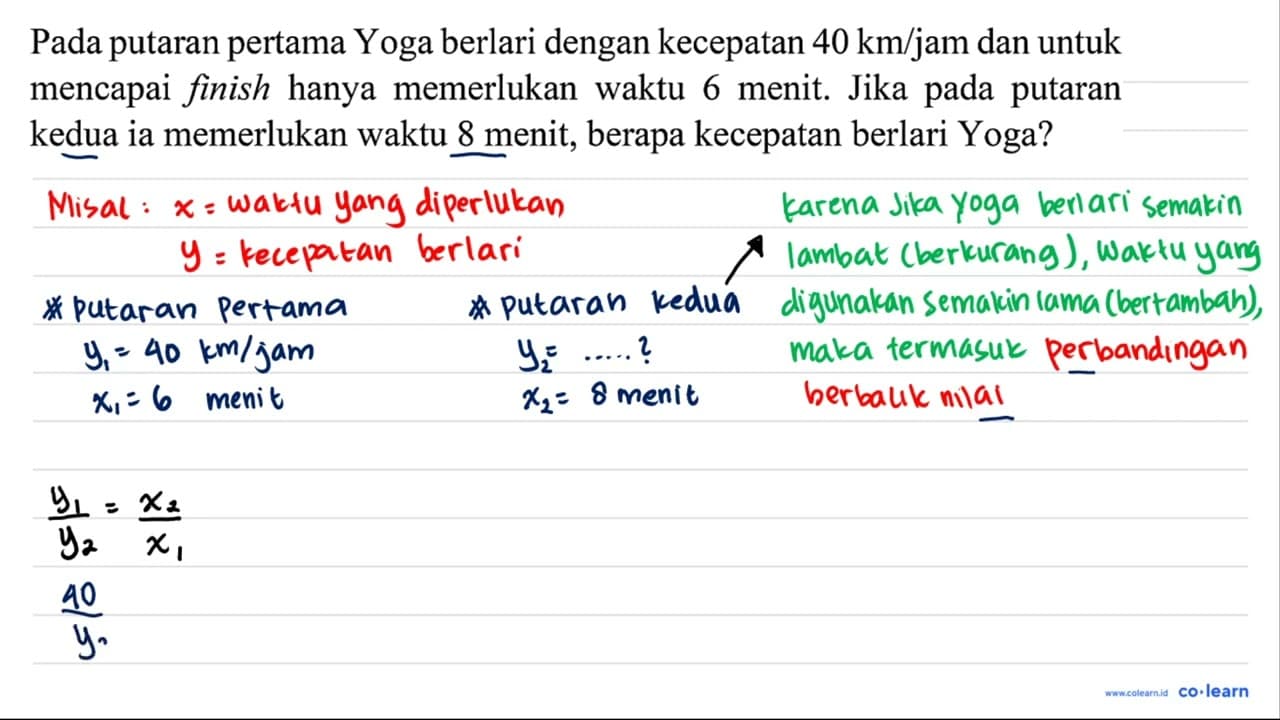 Pada putaran pertama Yoga berlari dengan kecepatan 40 km/jam dan untuk
mencapai finish hanya memerlukan waktu 6 menit. Jika pada putaran
kedua ia memerlukan waktu 8 menit, berapa kecepatan berlari Yoga?
Misal : x = waktu yang diperlukan
y = kecepatan berlari
* putaran Pertama
y₁ = 40 km/jam
x₁ = 6 menit
* putaran kedua
y₂ = .....?
x₂ = 8 menit
karena Jika Yoga berlari semakin
lambat (berkurang), waktu yang
digunakan semakin lama (bertambah),
maka termasuk perbandingan
berbalik nilai
y₁/y₂ = x₂/x₁
40/y₂
www.colearn.id co·learn